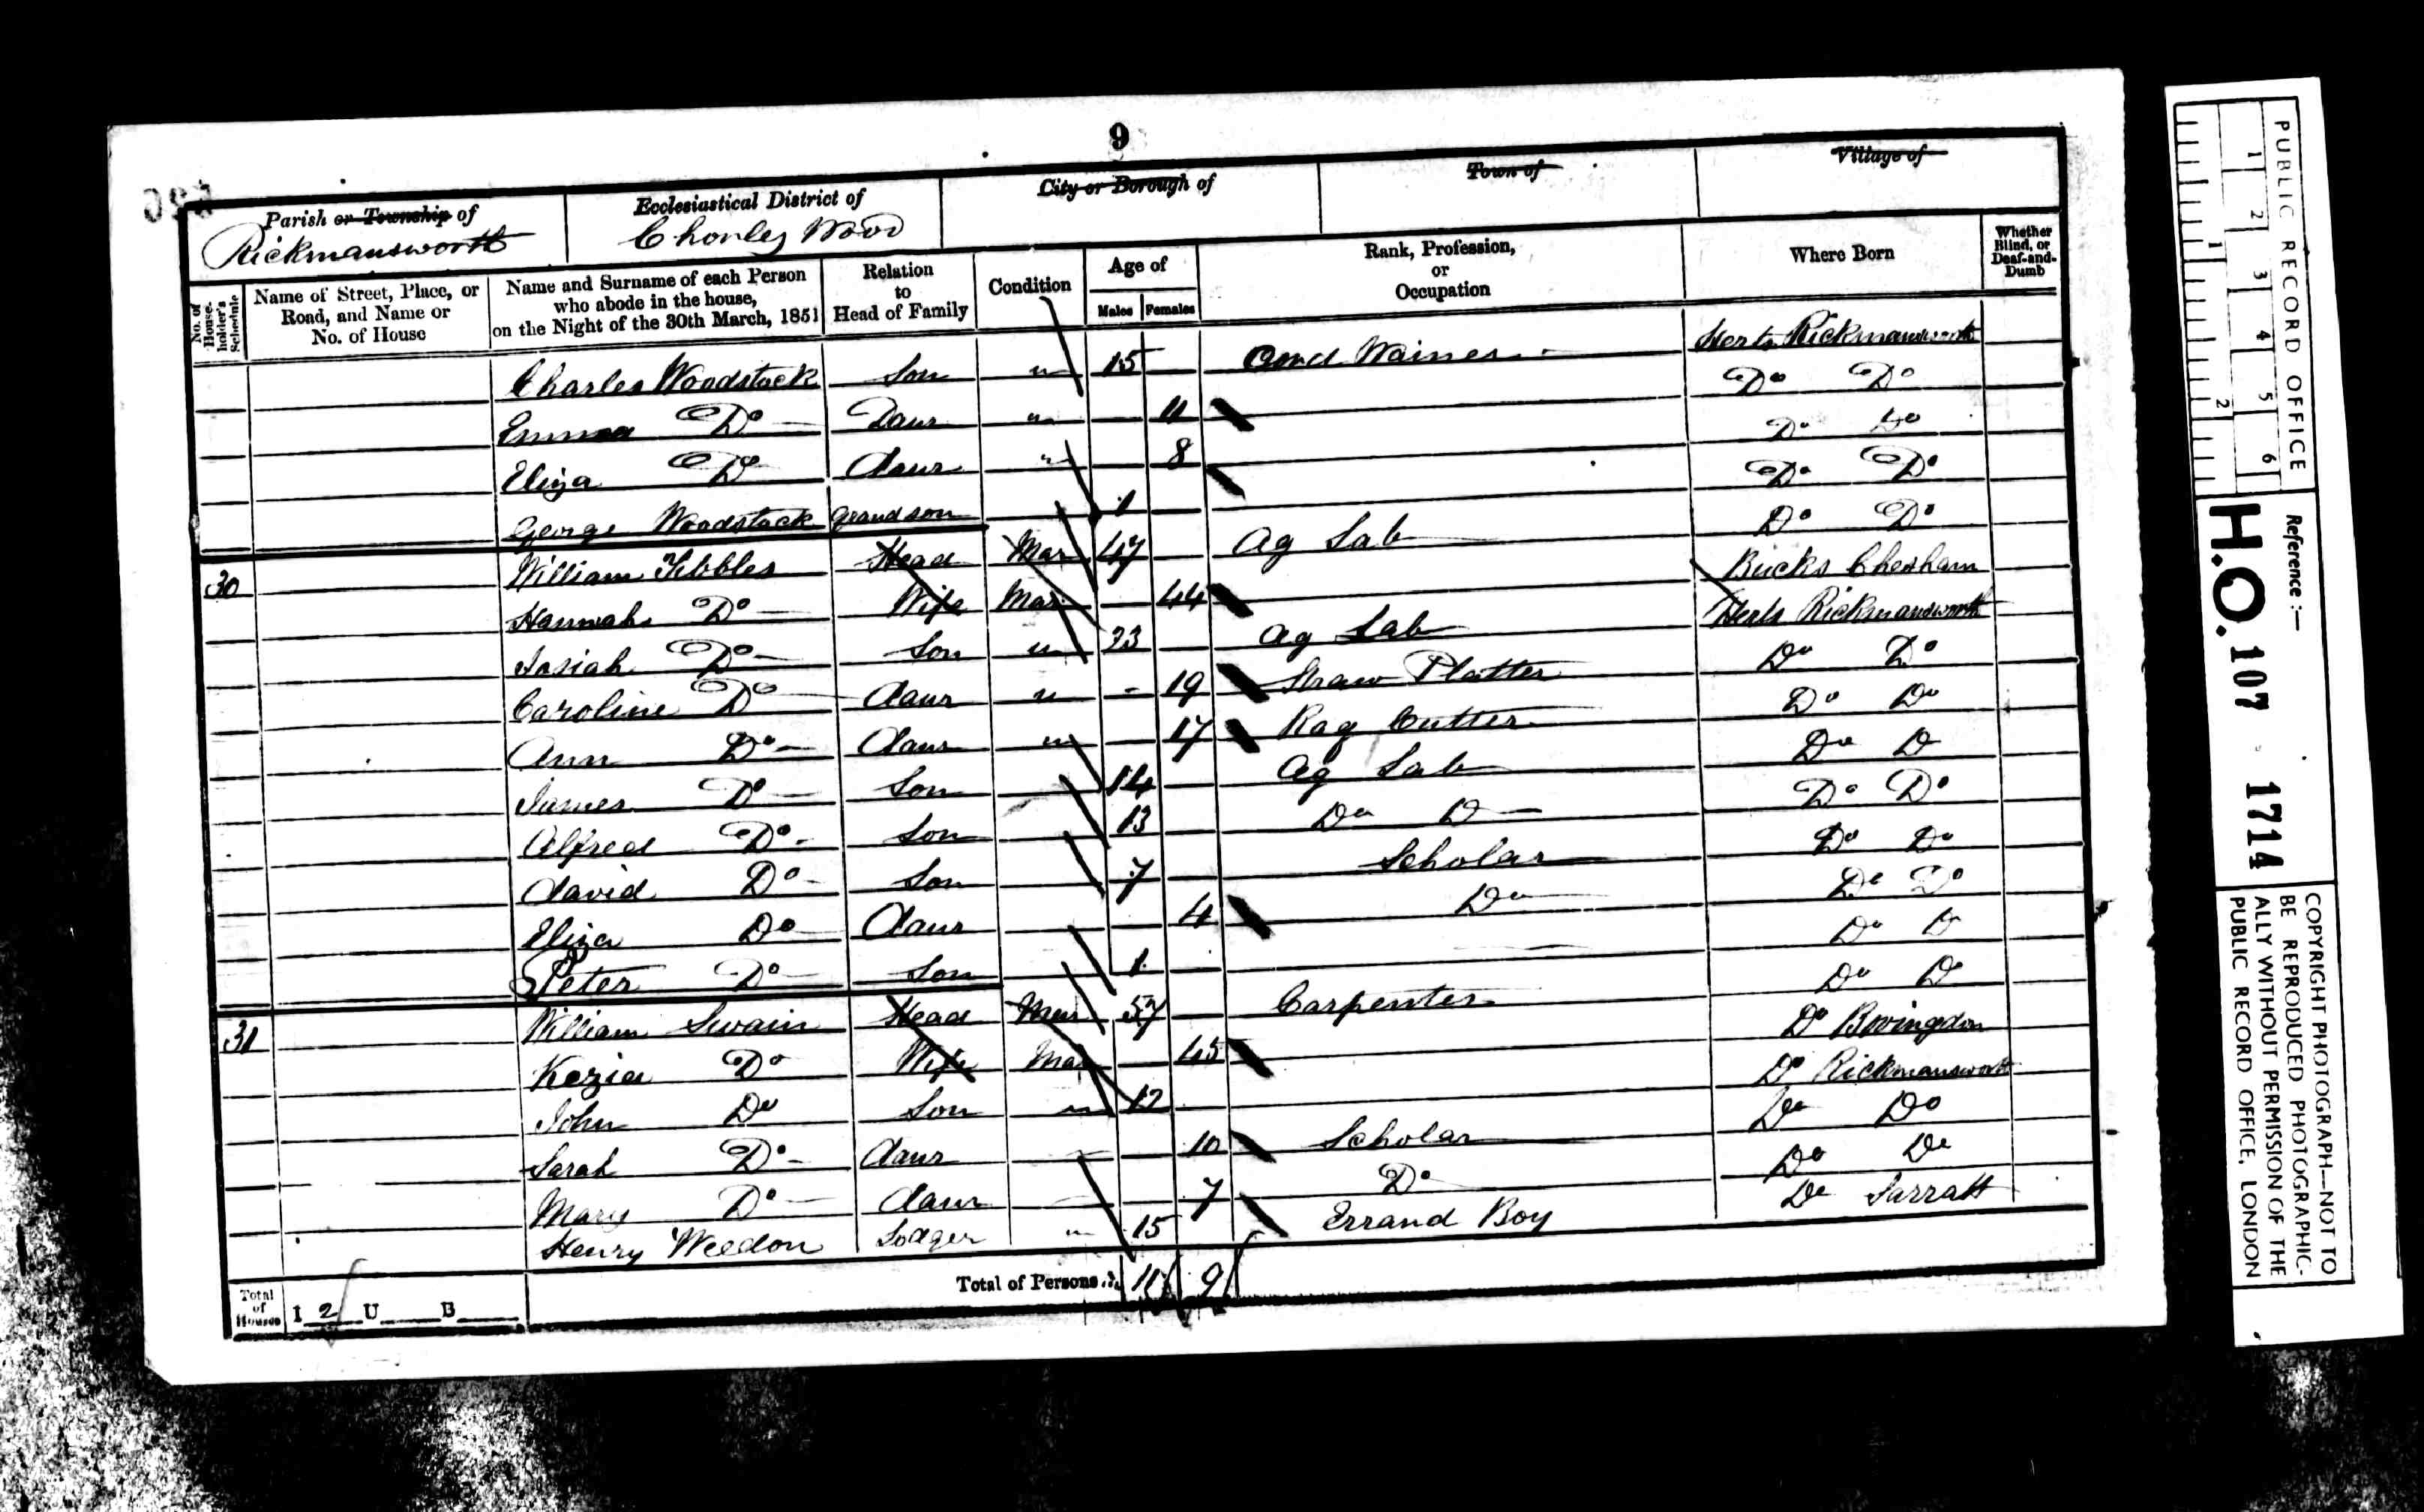 9
Parish or Township of
Rickmansworth
Ecclesiastical District of
Chorley Wood
City or Borough of
Town of
Village of
No. of House-holder's Schedule
Name of Street, Place, or Road, and Name or No. of House
Name and Surname of each Person who abode in the house, on the Night of the 30th March, 1851
Relation to Head of Family
Condition
Age of
Males Females
Rank, Profession, or Occupation
Where Born
Whether Blind, or Deaf-and-Dumb
Charles Woodstock Son u 15 Herts Rickmansworth
Emma Do Daur u 11 Do Do
Eliza Do daur u 8 Do Do
George Woodstock Grandson 1 Do Do
30 William Tibbles Head Mar 47 Ag Lab Do Do
Hannah Do Wife Mar 44 Bucks Chesham
Josiah Do Son u 23 Ag Lab Herts Rickmansworth
Caroline Do daur u 19 Straw Platter Do Do
Ann Do daur u 17 Rag Cutter Do Do
James Do Son 14 Ag Lab Do Do
Alfred Do Son 13 Do Do Do Do
david Do Son 7 Scholar Do Do
Eliza Do daur 4 Do Do Do
Peter Do Son 1 Do Do
31 William Swain Head Mar 57 Carpenter Do Do
Kezia Do Wife Mar 45 Do Bovingdon
John Do Son u 12 Do Rickmansworth
Sarah Do daur 10 Scholar Do Do
Mary Do daur 7 Do Do Do
Henry Weedon Lodger u 15 Errand Boy Do Sarratt
Total of Houses I 2 U B
Total of Persons 11 9
PUBLIC RECORD OFFICE
1 2 3 4 5 6
1 2
Reference :—
H.O. 107 1714
COPYRIGHT PHOTOGRAPH—NOT TO
BE REPRODUCED PHOTOGRAPHIC-
ALLY WITHOUT PERMISSION OF THE
PUBLIC RECORD OFFICE, LONDON